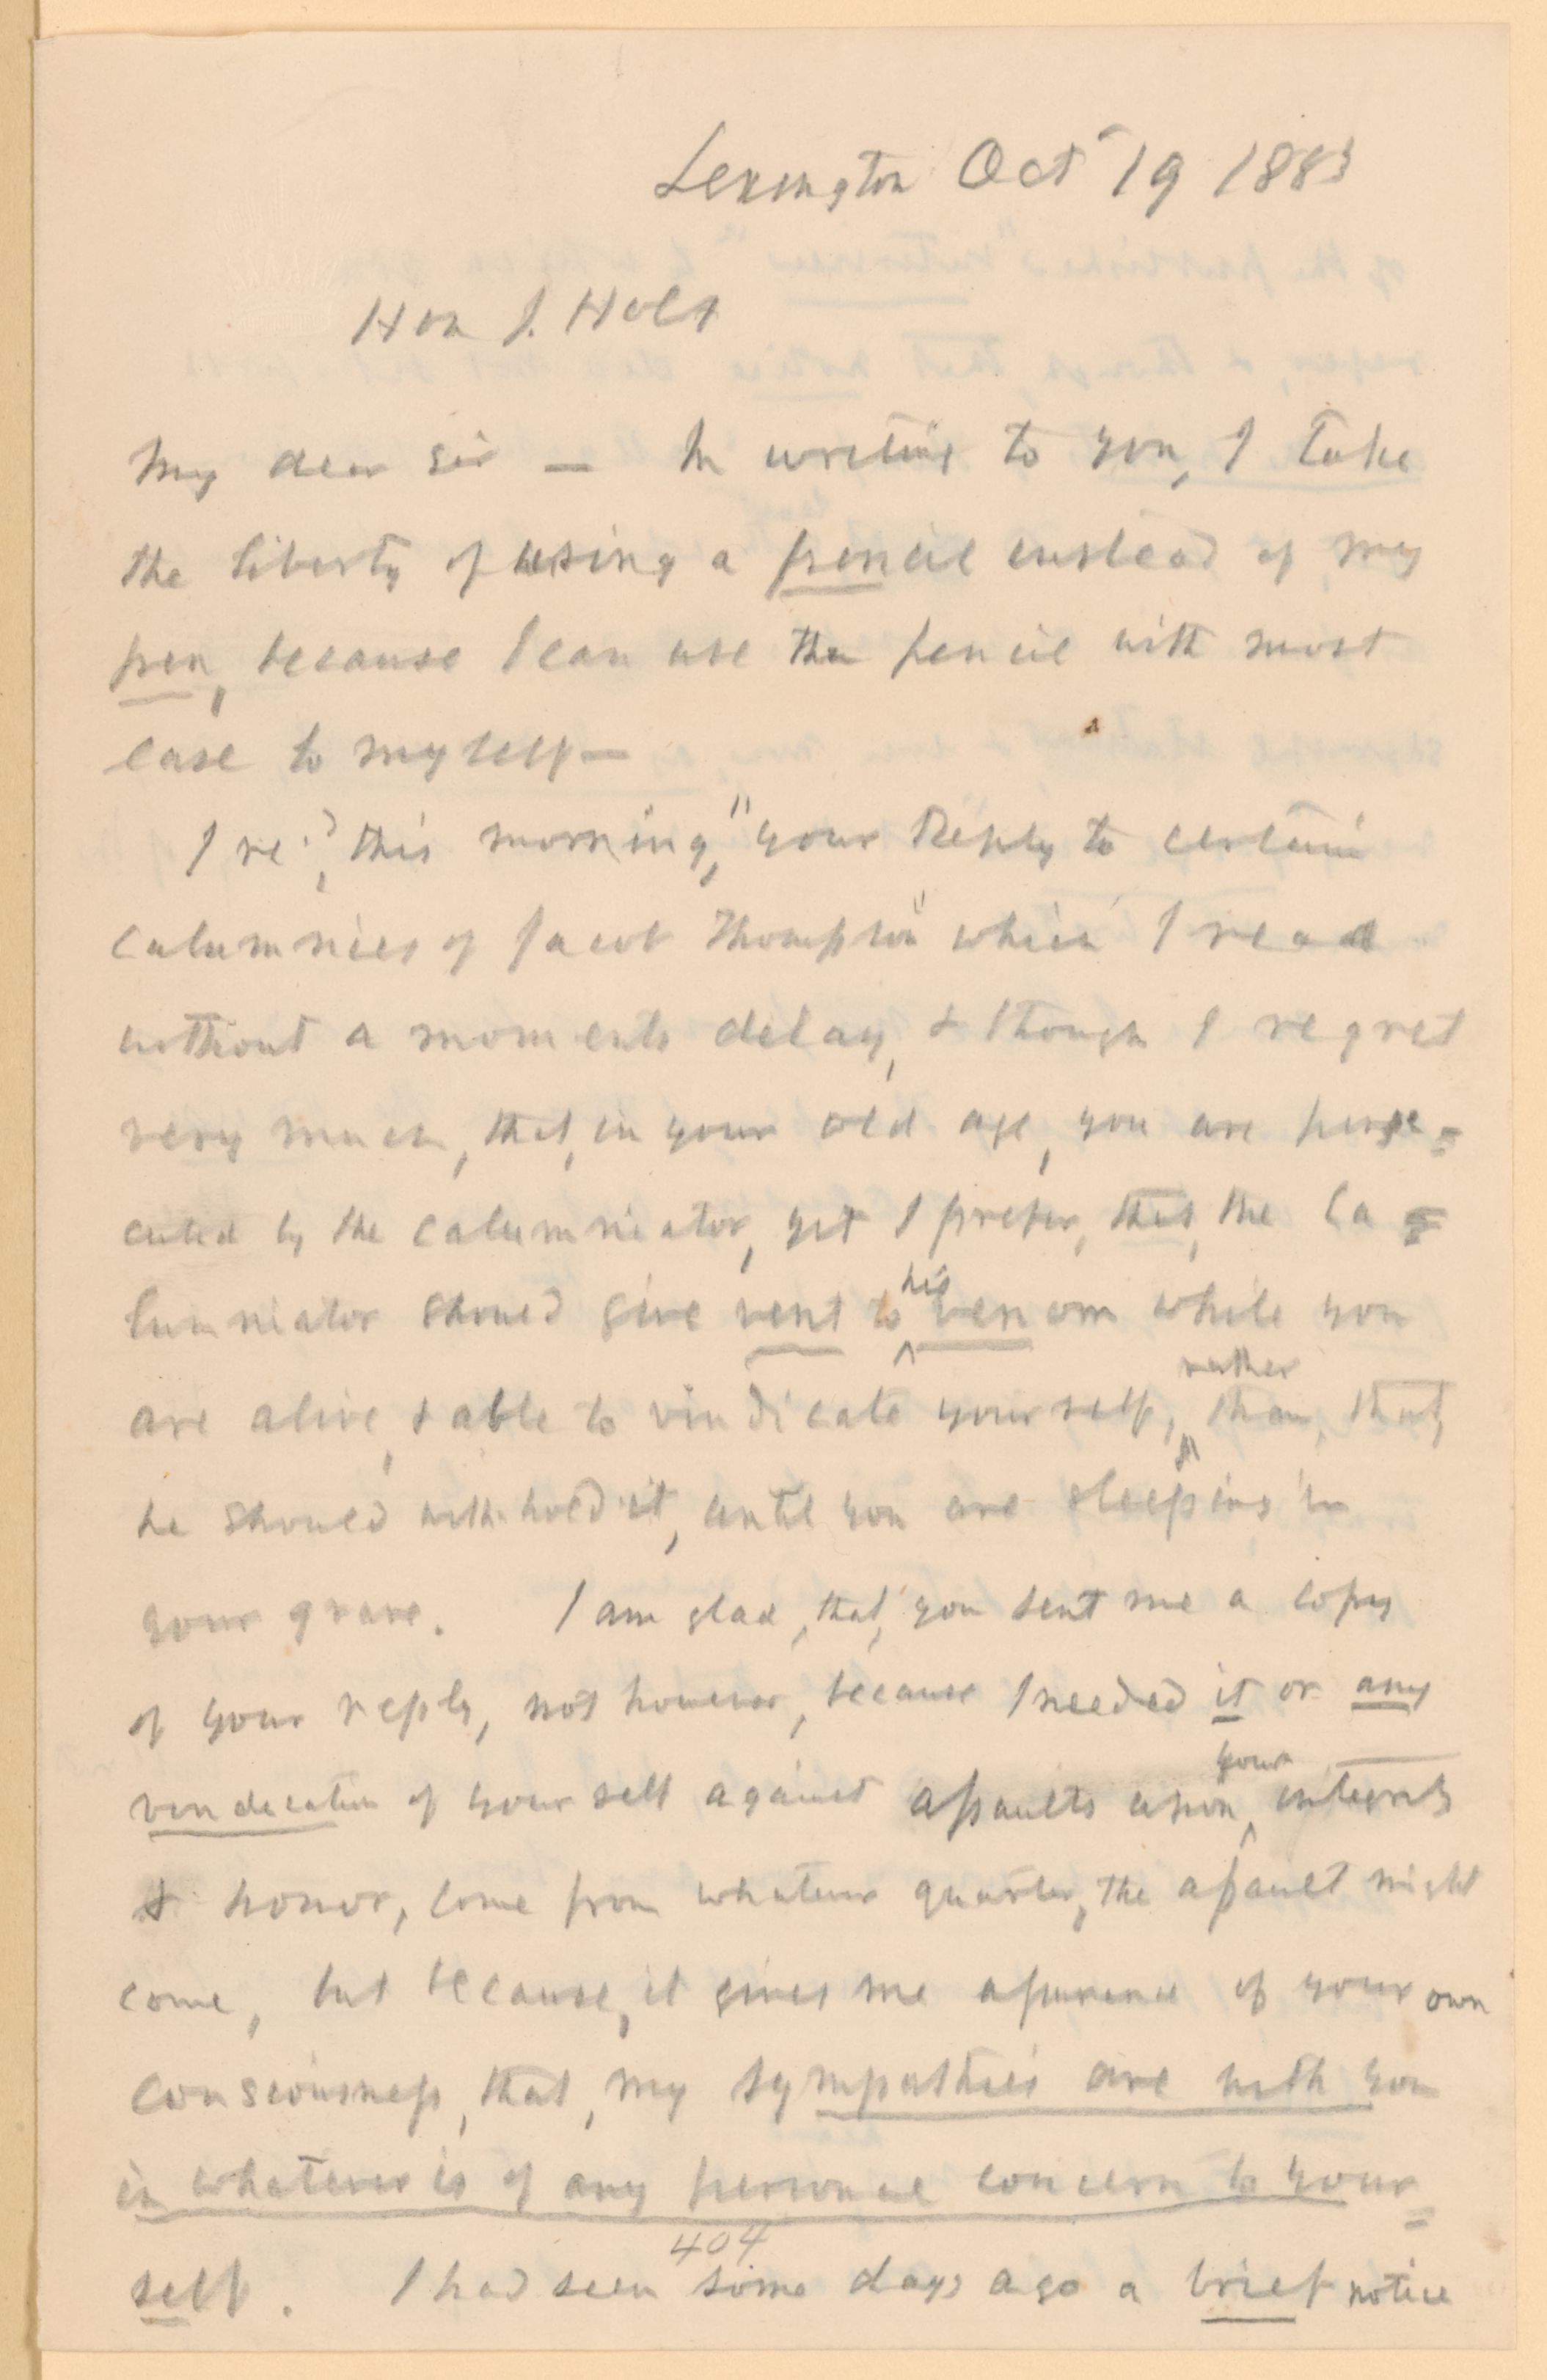 Lexington Oct 19 1883
Hon J. Holt
My dear Sir — In writing to you, I take
the liberty of using a pencil instead of my
pen, because I can use the pencil with most
ease to myself—
I rec'd, this morning, "your Reply to certain
calumnies of Jacob Thompson" which I read
without a moments delay, & though I regret
very much, that, in your old age, you are perse=
cuted by the calumniator, yet I prefer, that, the Ca=
lumniator should give vent to his venom while you
are alive, & able to vindicate yourself, rather than, that,
he should withhold it, until you are sleeping in
your grave. I am glad, that, you sent me a copy
of your reply, not however, because I needed it or any
vindication of your self against assaults upon your integrity
& honor, come from whatever quarter, the assault might
come, but because, it gives me assurance of your own
consciousness, that, my sympathies are with you
in whatever is of any personal concern to your=
self. I had seen some days ago a brief notice
404